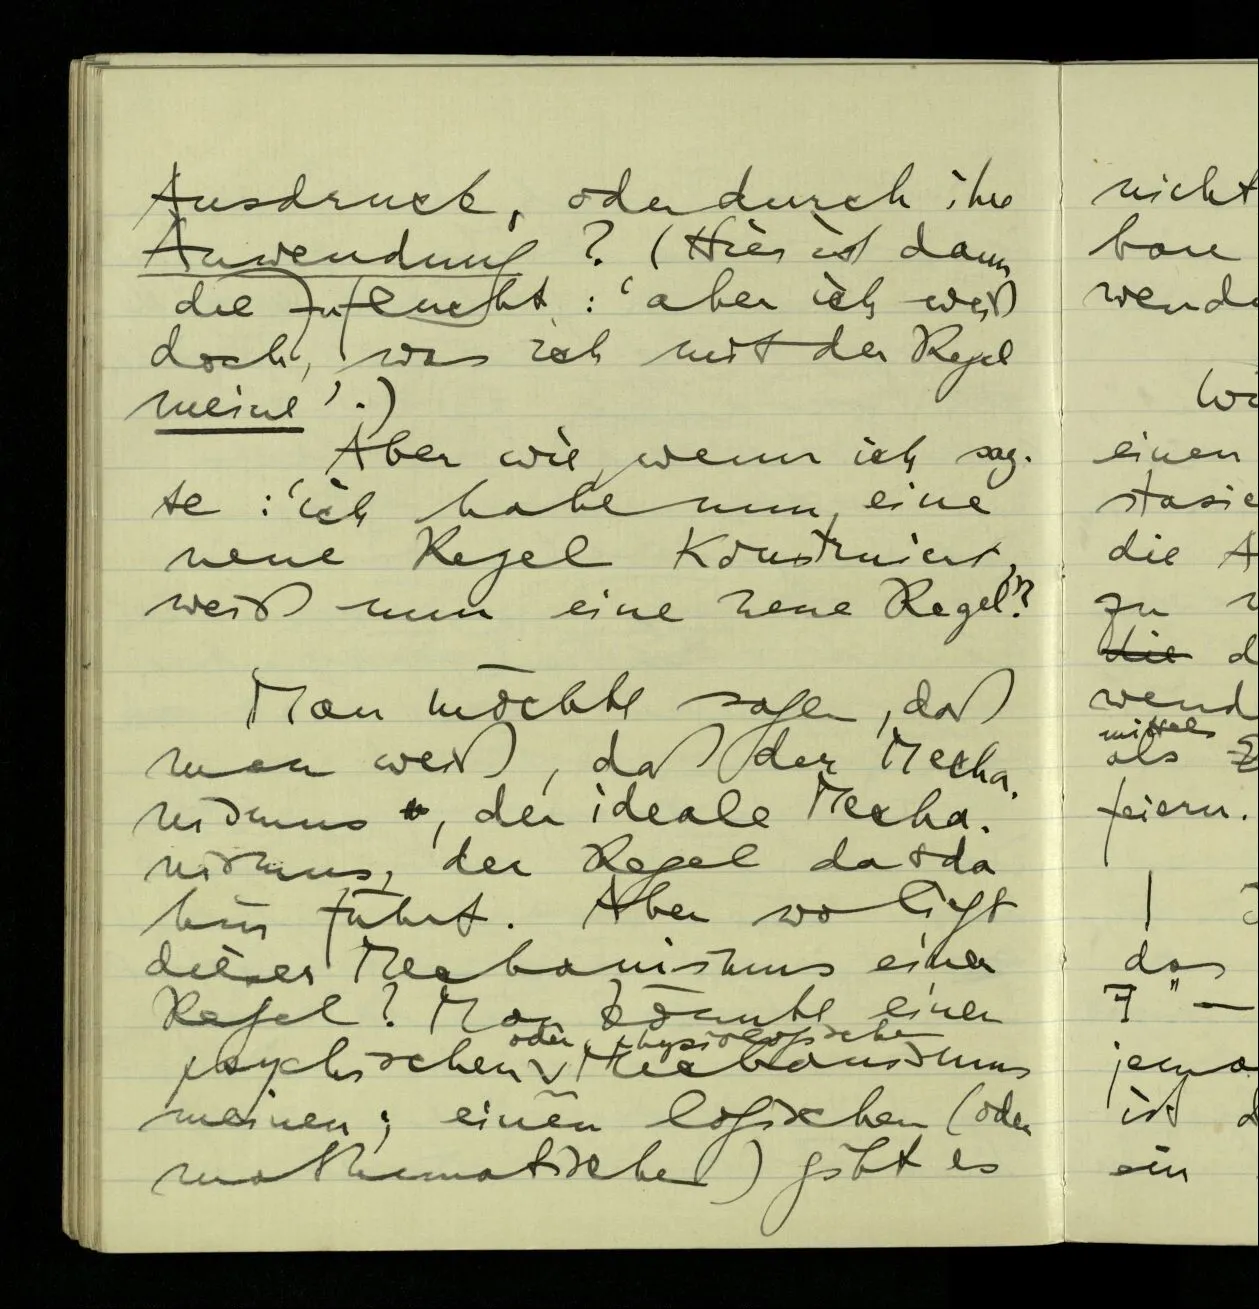 Ausdruck, oder durch ihre
Anwendung? (Hier ist dann
die Zuflucht: ‘aber ich weiß
doch, was ich mit der Regel
meine’.)
Aber wie, wenn ich sag-
te: ‘ich habe nun eine
neue Regel konstruiert,
weiß nun eine neue Regel’?
Man möchte sagen, daß
man weiß, daß der Mecha-
nismus, der ideale Mecha-
nismus, der Regel da & da
hin führt. Aber wo liegt
dieser Mechanismus einer
Regel? Man könnte einen
oder physiologischen
psychischen Mechanismus
meinen; einen logischen (oder
mathematischen) gibt es
nicht
bar
wende
einen
stasie
die A
zu
die d
wend
mittels
als
feiern.
|
das
7" —
jema
ist d
ein